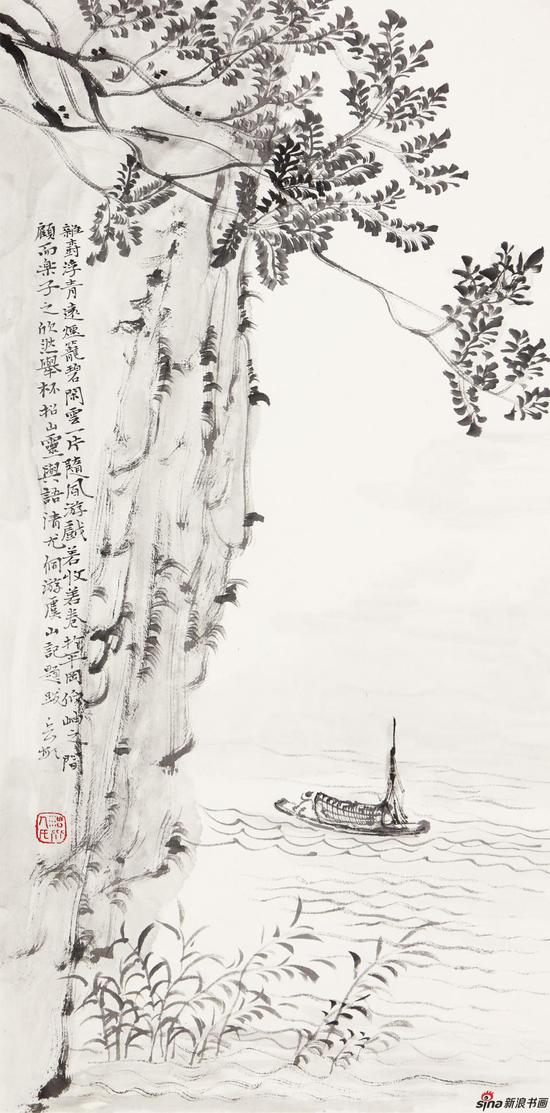 浮青遠煙籠碧閑雲一片隨風游戲若收若卷於平岡岫之間
顧而樂子之欣然舉杯招山靈與語清尤侗游虞山記題跋
sina新浪书画